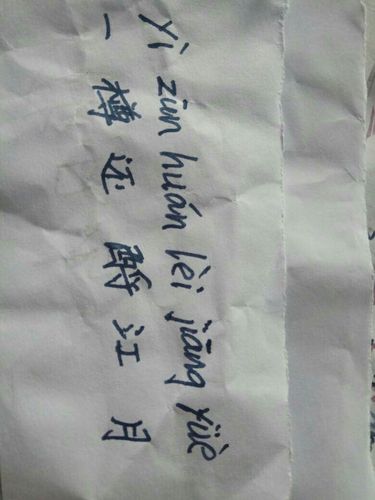 Yì zūn huán lèi jiāng yüè
一樽还酹江月